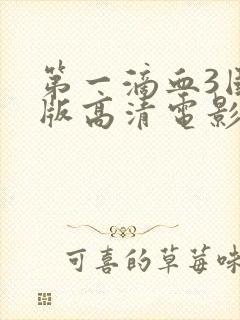 第一滴血3国
版高清电影
可喜的草莓味